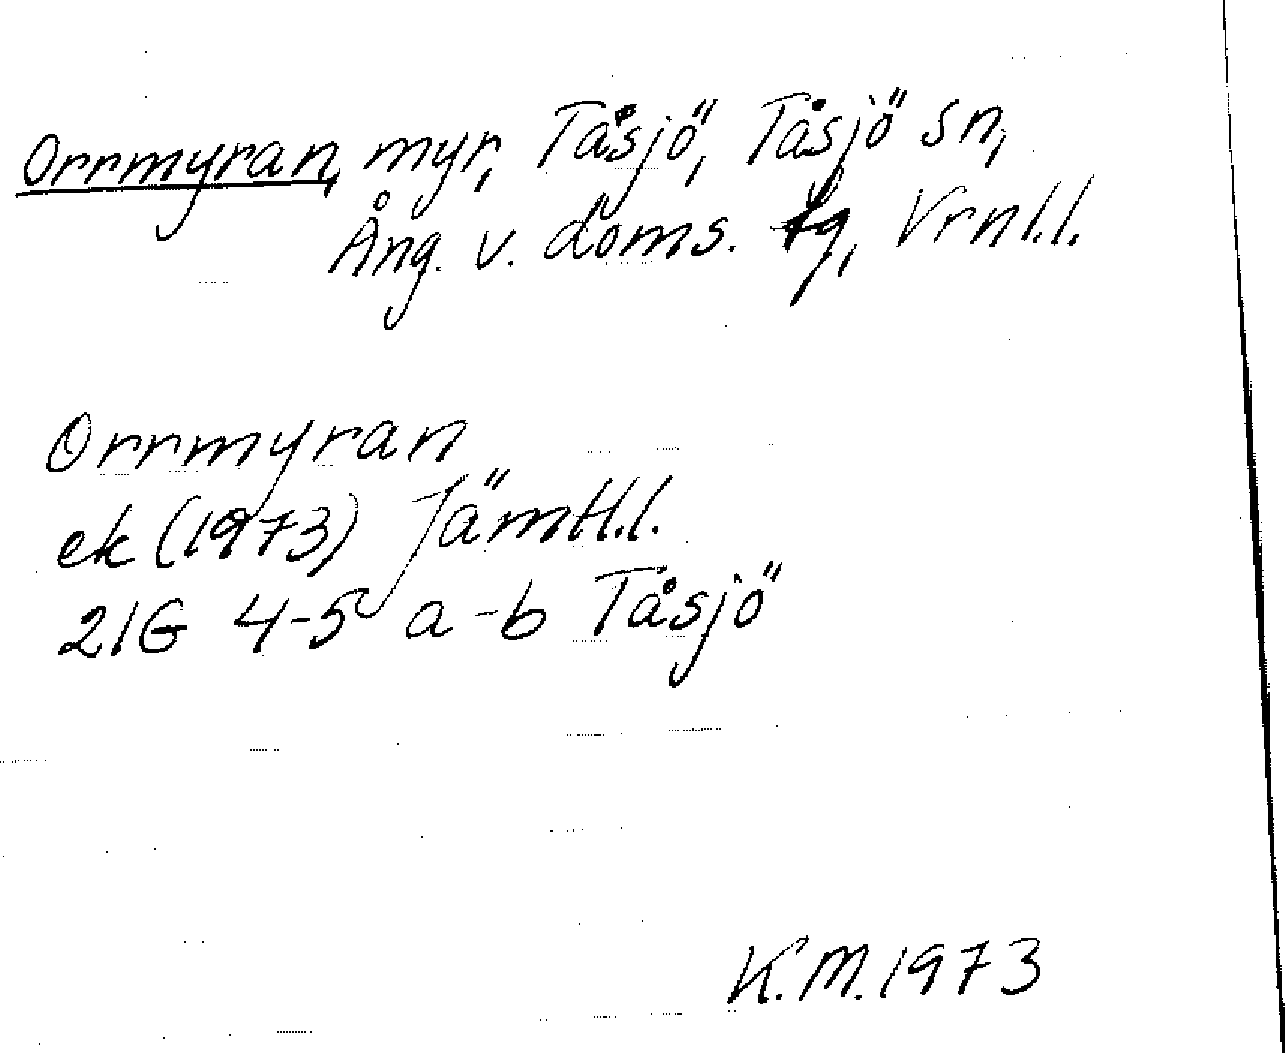 Orrmyran, myr, Tåsjö, Tåsjö sn,
Ång. v. doms. tg, Vrnl.l.
Orrmyran
ek (1973) Jämtl.l.
21G 4-5 a-b Tåsjö
K.M. 1973